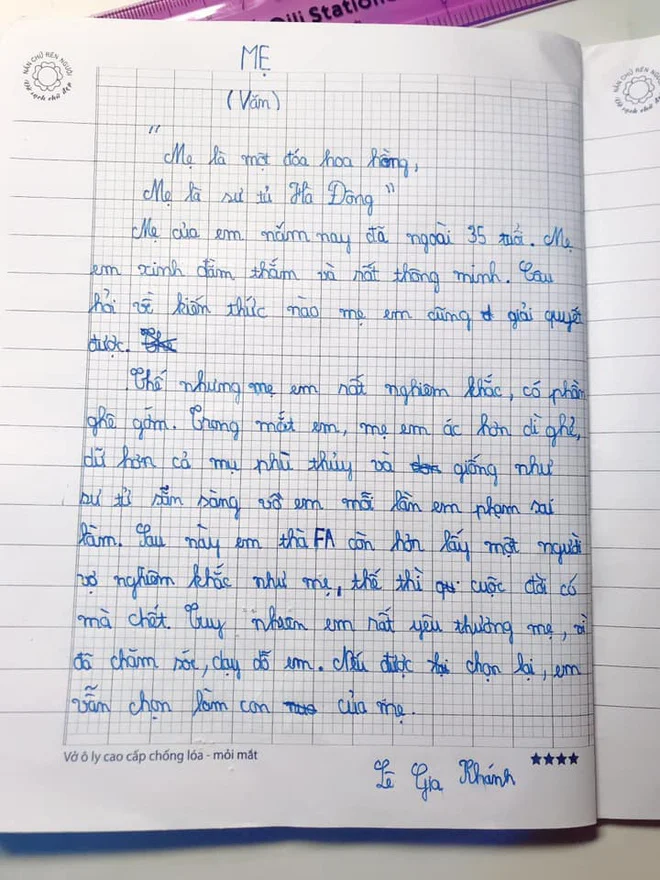 Oli Station
NẮN CHỮ RÈN NGƯỜI
Vở sạch chữ đẹp
NẮN CHỮ RÈN NGƯỜI
Vở sạch chữ đẹp
MẸ
(Văn)
"
Mẹ là một đóa hoa hồng,
Mẹ là sư tử Hà Đông"
Mẹ của em năm nay đã ngoài 35 tuổi. Mẹ
em xinh đằm thắm và rất thông minh. Câu
hỏi về kiến thức nào mẹ em cũng giải quyết
được.
Thế nhưng mẹ em rất nghiêm khắc, có phần
ghê gớm. Trong mắt em, mẹ em ác hơn dì ghẻ,
dữ hơn cả mụ phù thủy và giống như
sư tử sẵn sàng vồ em mỗi lần em phạm sai
lầm. Sau này em thà FA còn hơn lấy một người
vợ nghiêm khắc như mẹ, thế thì cuộc đời có
mà chết. Tuy nhiên em rất yêu thương mẹ, vì
đã chăm sóc, dạy dỗ em. Nếu được chọn lại, em
vẫn chọn làm con của mẹ.
Vở ô ly cao cấp chống lóa - mỏi mắt
Lê Gia Khánh